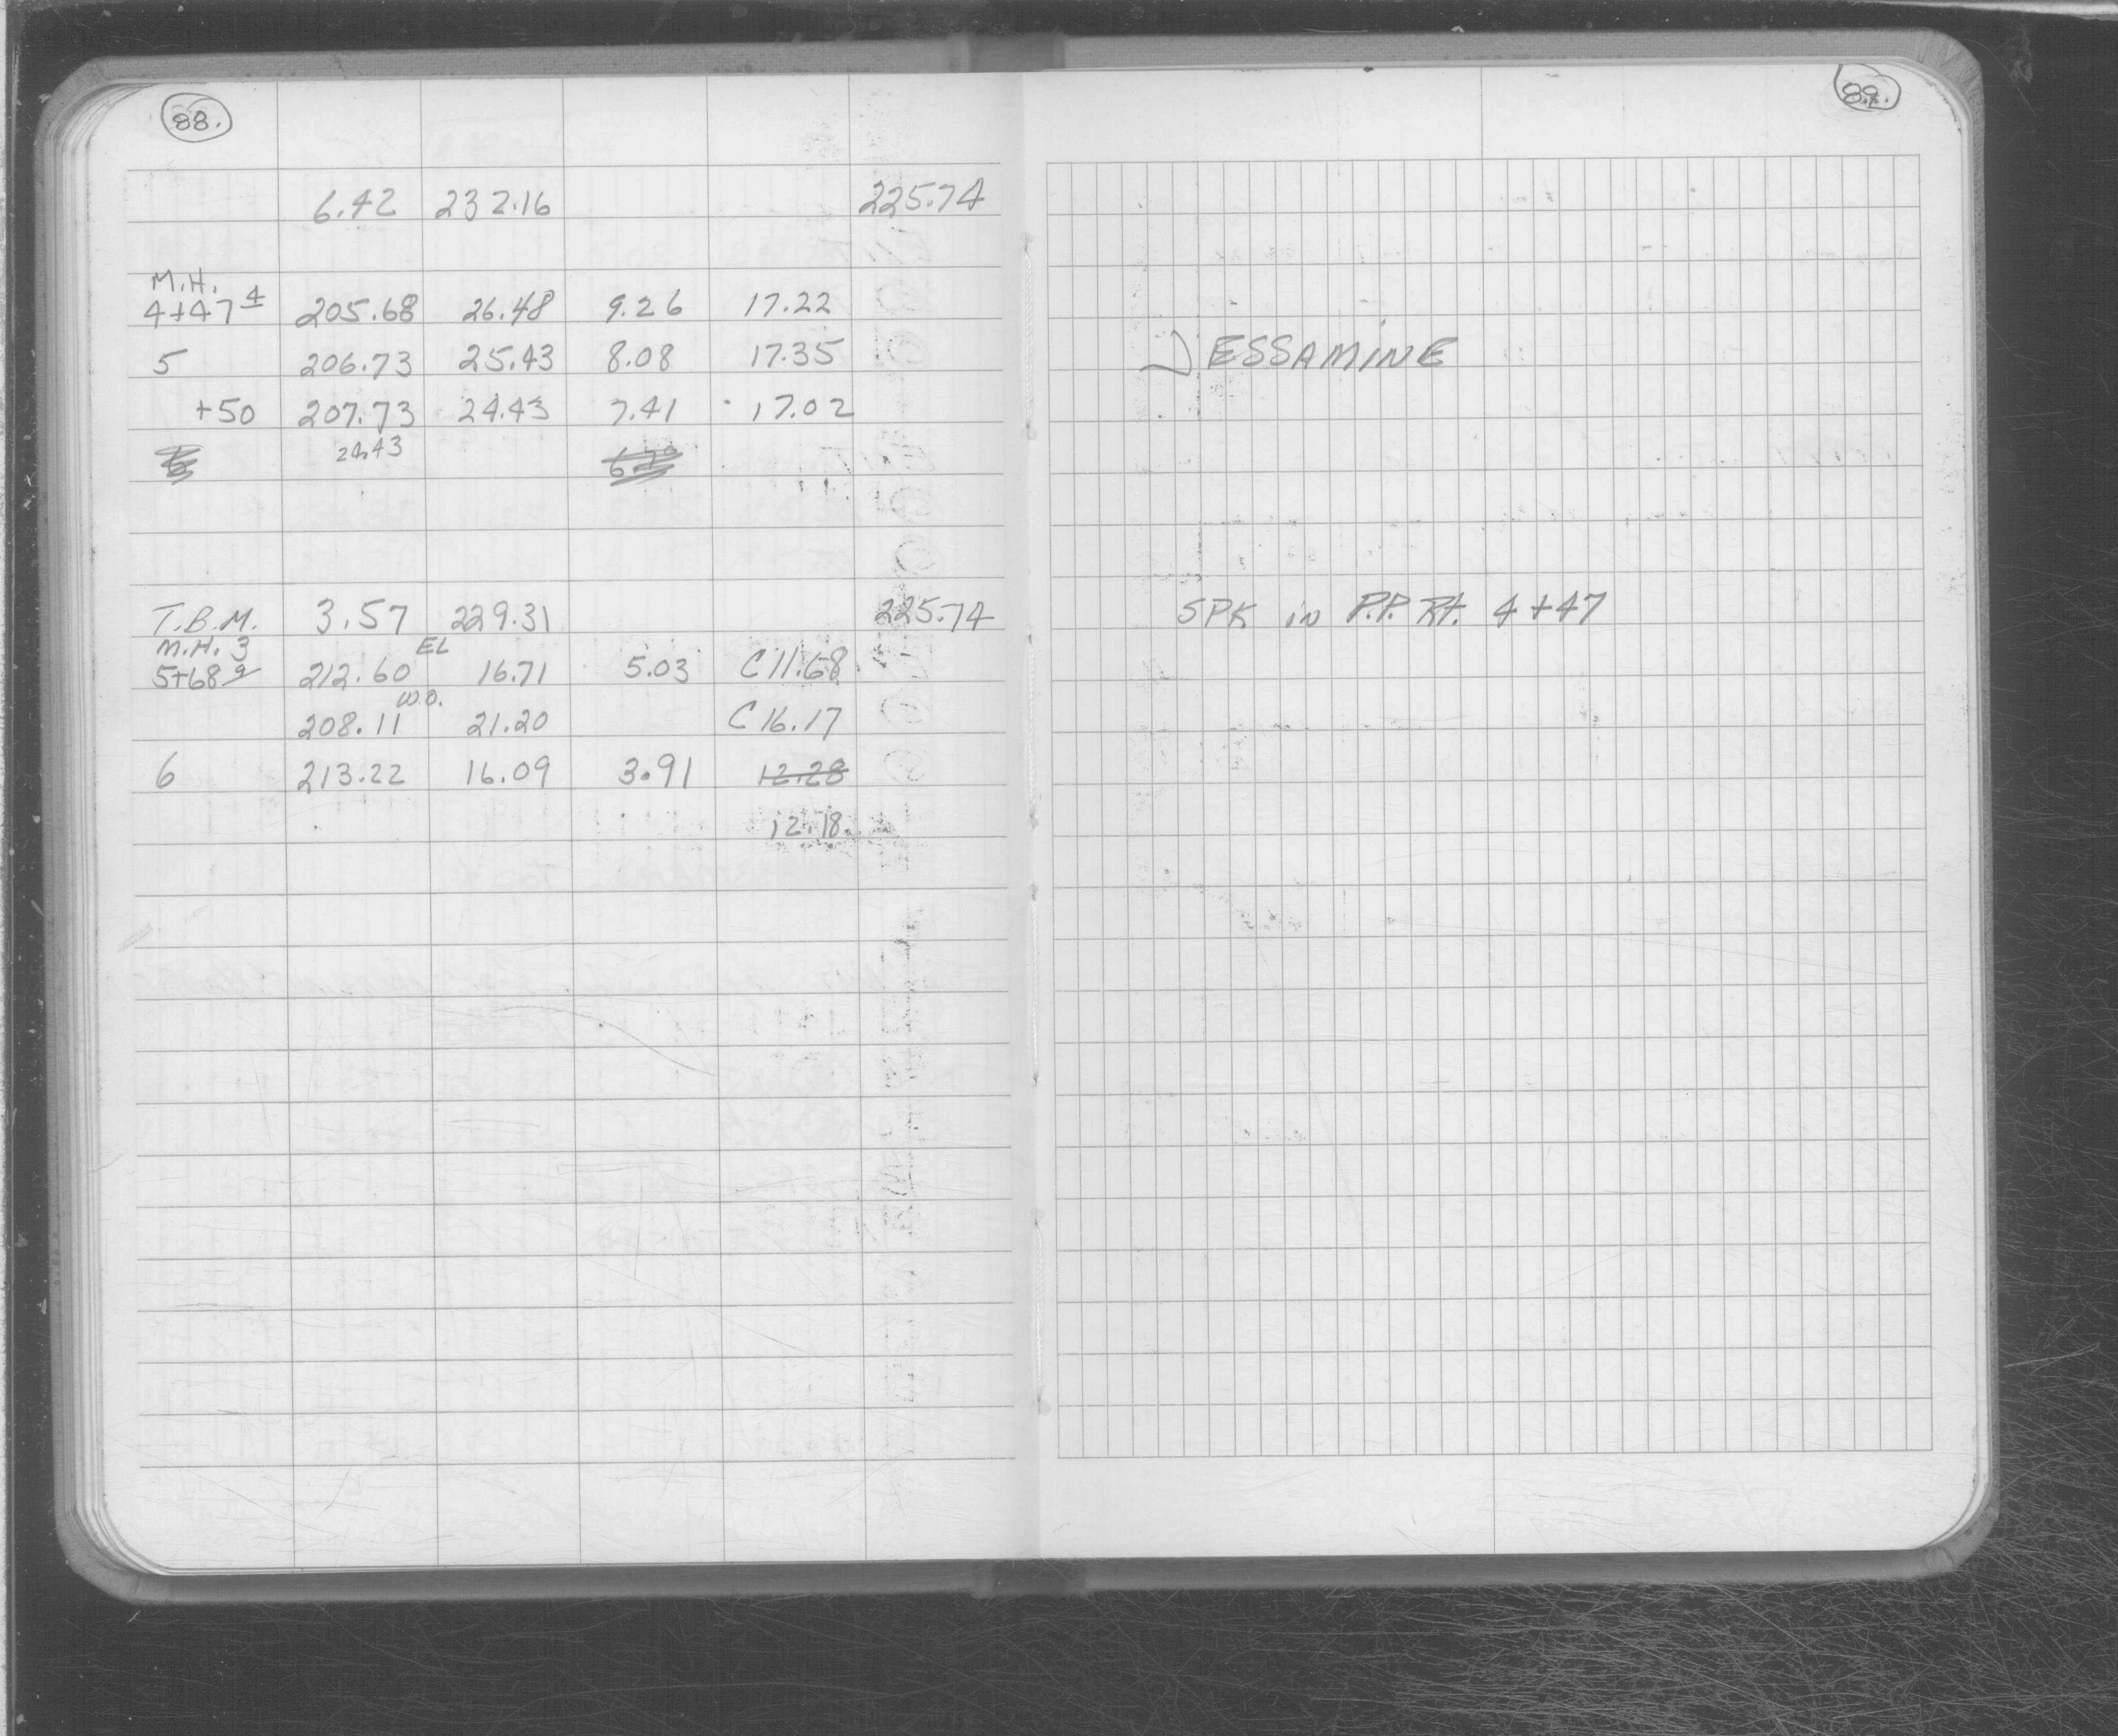 88.
6.42 232.16 225.74
M.H.
4+47 4 205.68 26.48 9.26 17.22
5 206.73 25.43 8.08 17.35
+50 207.73 24.43 7.41 17.02
24.43
T.B.M. 3.57 229.31 225.74
M.H. 3 EL
5+68 9 212.60 16.71 5.03 C 11.68
W.O.
208.11 21.20 C 16.17
6 213.22 16.09 3.91 12.28
12.18
89.
JESSAMINE
SPK in P.P. Rt. 4+47